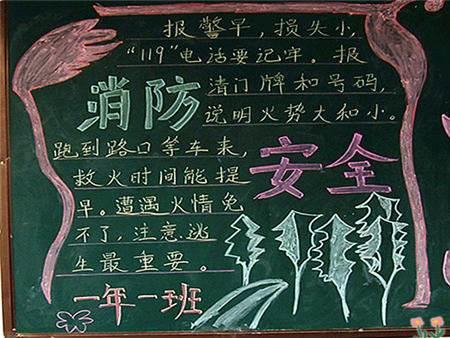 报警早，损失小，
"119"电话要记牢。报
清门牌和号码，
说明火势大和小。
消防
跑到路口等车来，
救火时间能提
早。遭遇火情免
不了，注意逃
生最重要。
安全
一年一班